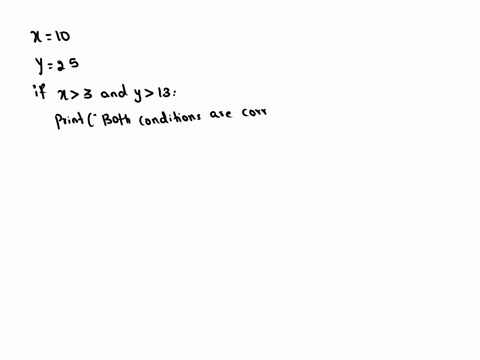 x=10
y=25
if x>3 and y>13:
Print("Both conditions are corr